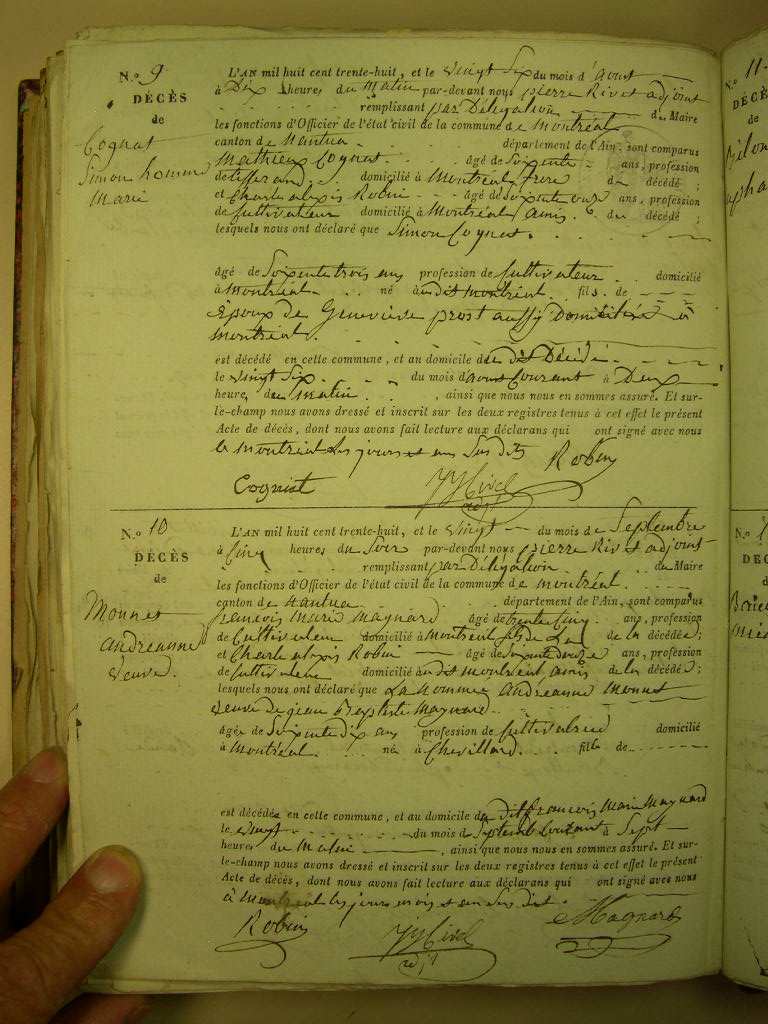 N.o 9
DÉCÈS
de
Cognat
Simon homme
Marié
L'AN mil huit cent trente-huit, et le vingt Six du mois d'aoust
à Dix heures du Matin par-devant nous pierre Rivet adjoint
remplissant par Délégation du Maire
les fonctions d'Officier de l'état civil de la commune de Montréal
canton de Nantua département de l'Ain, sont comparus
Mathieu Cognat âgé de Soixante ans, profession
de tisserand domicilié à Montréal frere du décédé ;
et Charle alexis Robin âgé de Soixante onze ans, profession
de Cultivateur domicilié à Montréal amis du décédé ;
lesquels nous ont déclaré que Simon Cognat
âgé de Soixente trois ans profession de Cultivateur domicilié
à Montréal né audit Montréal fils de
Epoux de Geneviève prost aussy Domicilié à
Montréal.
est décédé en cette commune, et au domicile de dit Décédé
le vingt Six du mois d'aoust Courant à Deux
heure, du Matin, ainsi que nous nous en sommes assuré. Et sur-
le-champ nous avons dressé et inscrit sur les deux registres tenus à cet effet le présent
Acte de décès, dont nous avons fait lecture aux déclarans qui ont signé avec nous
à montréal les jours et an Sus dits
Robin
Cognat
adjt
N.o 10
DÉCÈS
de
Monnet
andréanne
veuve
L'AN mil huit cent trente-huit, et le vingt du mois de Septembre
à Cinq heures du Soir par-devant nous pierre Rivet adjoint
remplissant par Délégation du Maire
les fonctions d'Officier de l'état civil de la commune de Montréal
canton de Nantua département de l'Ain, sont comparus
francois Marie Maynard âgé de trente Cinq ans, profession
de Cultivateur domicilié à Montréal fils de La de la décédée ;
et Charle alexis Robin âgé de Soixante douze ans, profession
de Cultivateur domicilié audit Montréal amis de la décédé ;
lesquels nous ont déclaré que La nommée andréanne Monnet
veuve de jean Baptiste Maynard
âgée de Soixente dix ans profession de Cultivatrice domicilié
à Montréal née à Chevillard fille de
est décédée en cette commune, et au domicile du dit francois Marie Maynard
le vingt du mois de Septembre Courant à Sept
heures du Matin, ainsi que nous nous en sommes assuré. Et sur-
le-champ nous avons dressé et inscrit sur les deux registres tenus à cet effet le présent
Acte de décès, dont nous avons fait lecture aux déclarans qui ont signé avec nous
à Montréal les jours mois et an Sus dit.
Robin
Maynard
adjt
N.o 11
DÉCÈS
de